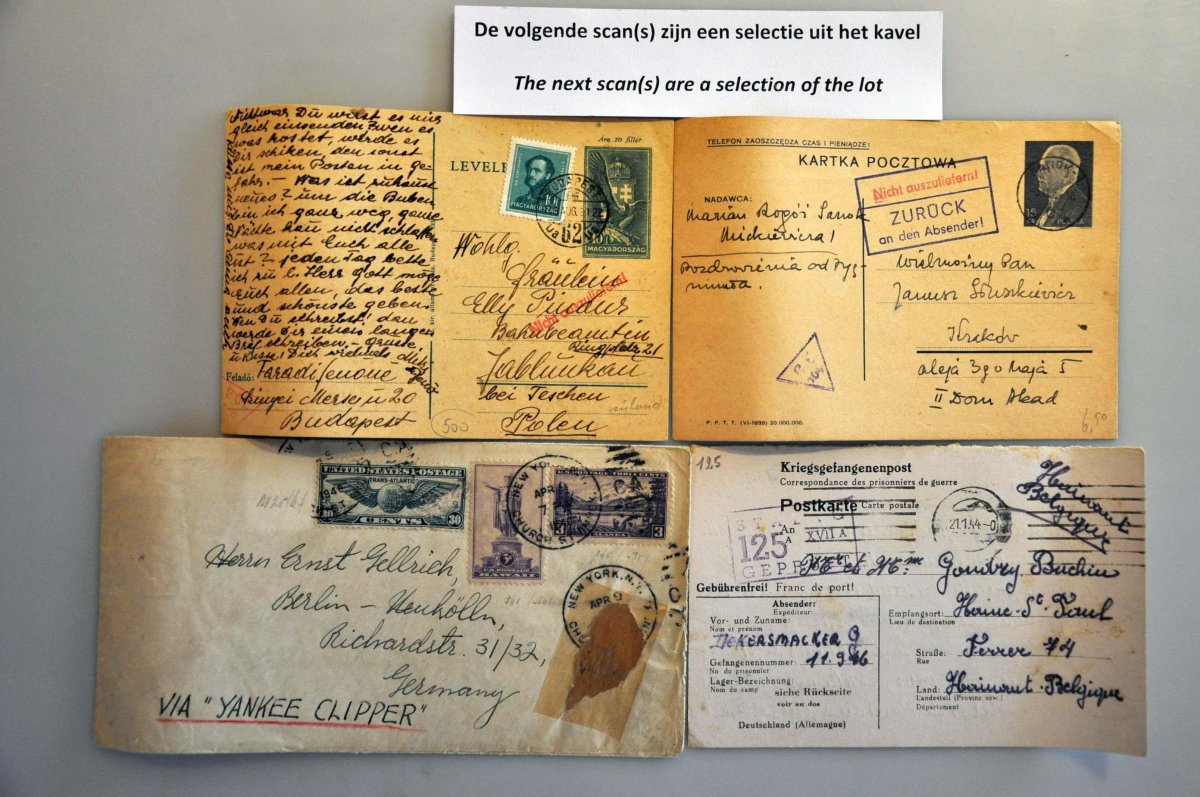 De volgende scan(s) zijn een selectie uit het kavel
The next scan(s) are a selection of the lot
Du wirst es mir
gleich einsenden
was kostet, werde es
schiken den sonst
ist mein Postan in ge-
fahr. - Was ist zuhause
neues? nur die Buben
bin ich ganz weg, ganze
kan nicht schlafen
was mit Euch alle
ist? jeden Tag bette
ich zu l. Herr Gott möge
Euch allen, das beste
und schönste geben
Wen Du schreibst, dan
werde Dir einen langen
Brief schreiben. -
u Küsse Dich
Feladó:
Merse u 20
Budapest
LEVELE
Ára 10 fillér.
10f
MAGYARORSZÁG
BUDAPEST
62
MAGYARORSZÁG
Wohlg.
Fräulein
Elly
Nicht auszuliefern!
Bahnbeamtin
Ringplatz 21
Jablunkau
bei Teschen
Polen
500
TELEFON ZAOSZCZĘDZA CZAS I PIENIĄDZE!
KARTKA POCZTOWA
NADAWCA:
Marian Sanok
Mickiewicza 1
Pozdrowienia od Zyg-
munta.
Nicht auszuliefern!
ZURÜCK
an den Absender!
SANOK
15
Wielmożny Pan
Janusz
Kraków
aleja 3go Maja 5
II Dom Akad
P. P. T. T. (VI-1939) 20.000.000.
6,50
UNITED STATES POSTAGE
TRANS-ATLANTIC
30 CENTS 30
3¢
U.S. POSTAGE
HAWAII
NEW YORK
APR
CHURCH ST
3
NEW YORK, N.Y.
APR 9
Herrn Ernst Gellrich,
Berlin - Neukölln,
Richardstr. 31/32,
Germany
VIA "YANKEE CLIPPER"
125
Kriegsgefangenenpost
Correspondance des prisonniers de guerre
Postkarte Carte postale
An
A
STALAG XVII A
125
GEPRÜFT
Hainaut
Belgique
21.1.44-0
Mr et Mme
Gondry Buchin
Gebührenfrei! Franc de port!
Absender:
Expéditeur:
Vor- und Zuname:
Nom et prénom
DEKERSMACKER G
Gefangenennummer: 11.976
No du prisonnier
Lager-Bezeichnung:
Nom du camp
siehe Rückseite
voir au dos
Deutschland (Allemagne)
Empfangsort: Haine-St-Paul
Lieu de destination
Straße: Ferrer 74
Rue
Land: Hainaut-Belgique
Landesteil (Provinz usw.)
Département